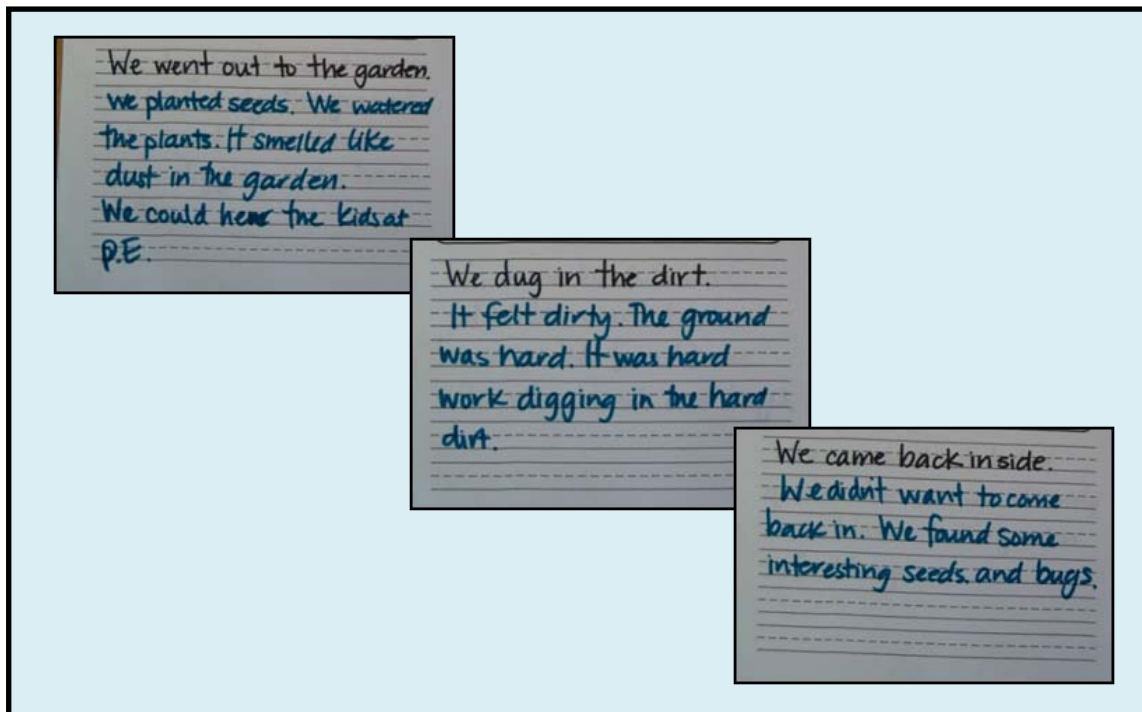 We went out to the garden.
we planted seeds. We watered
the plants. It smelled like
dust in the garden.
We could hear the kids at
P.E.
We dug in the dirt.
It felt dirty. The ground
was hard. It was hard
work digging in the hard
dirt.
We came back inside.
We didn't want to come
back in. We found some
interesting seeds. and bugs.